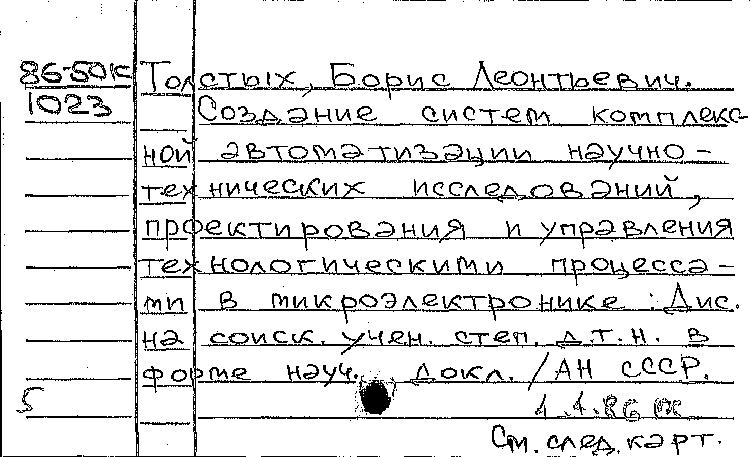 86-50к Толстых, Борис Леонтьевич.
1023 Создание систем комплекс-
ной автоматизации научно-
технических исследований,
проектирования и управления
технологическими процесса-
ми в микроэлектронике : Дис.
на соиск. учен. степ. д.т.н. в
форме науч. докл. / АН СССР.
5 1.4.86
См. след. карт.